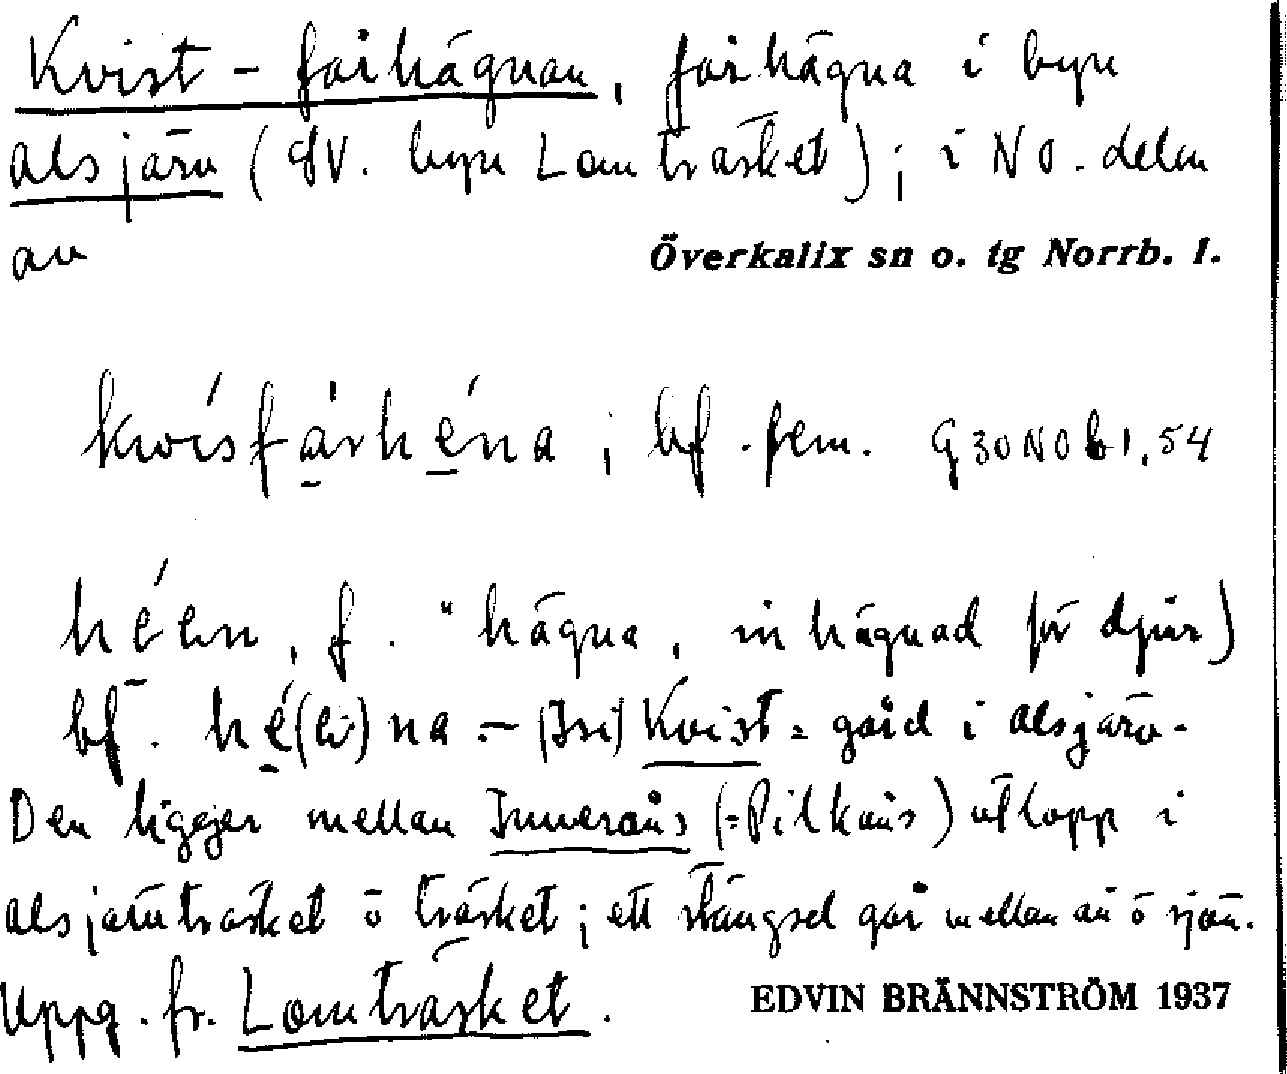 Kvist-fårhägnan, fårhägna i byn
alsjärv (SV. byn Lomträsket); i NO. delen
av Överkalix sn o. tg Norrb. l.
kwísfàrhéna; bf. fem. G 30 NO b 1, 54
héen, f. "hägna, inhägnad för djur)
bf. hé(ei)na .- (Isi) Kvist=gård i alsjärv.
Den ligger mellan Inneråns (=Pilkåns) utlopp i
alsjärvträsket o träsket; ett stängsel går mellan ån o sjön.
Uppg. fr. Lomträsket.
EDVIN BRÄNNSTRÖM 1937